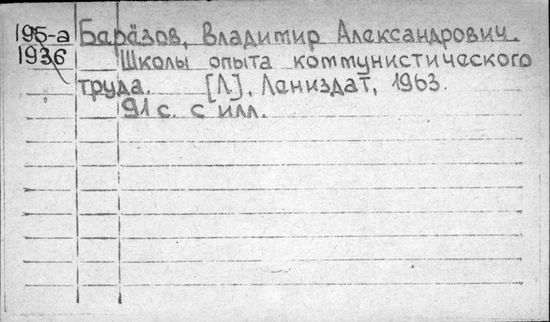 195-а Барäзов, Владимир Александрович.
1936 Школы опыта коммунистического
труда. [Л], Лениздат, 1963.
91 с. с илл.